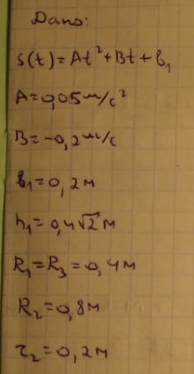 Дано:
s(t)=At²+Bt+b₁
A=0,05м/с²
B=-0,2м/с
b₁=0,2м
h₁=0,4√2м
R₁=R₃=0,4м
R₂=0,8м
τ₂=0,2м